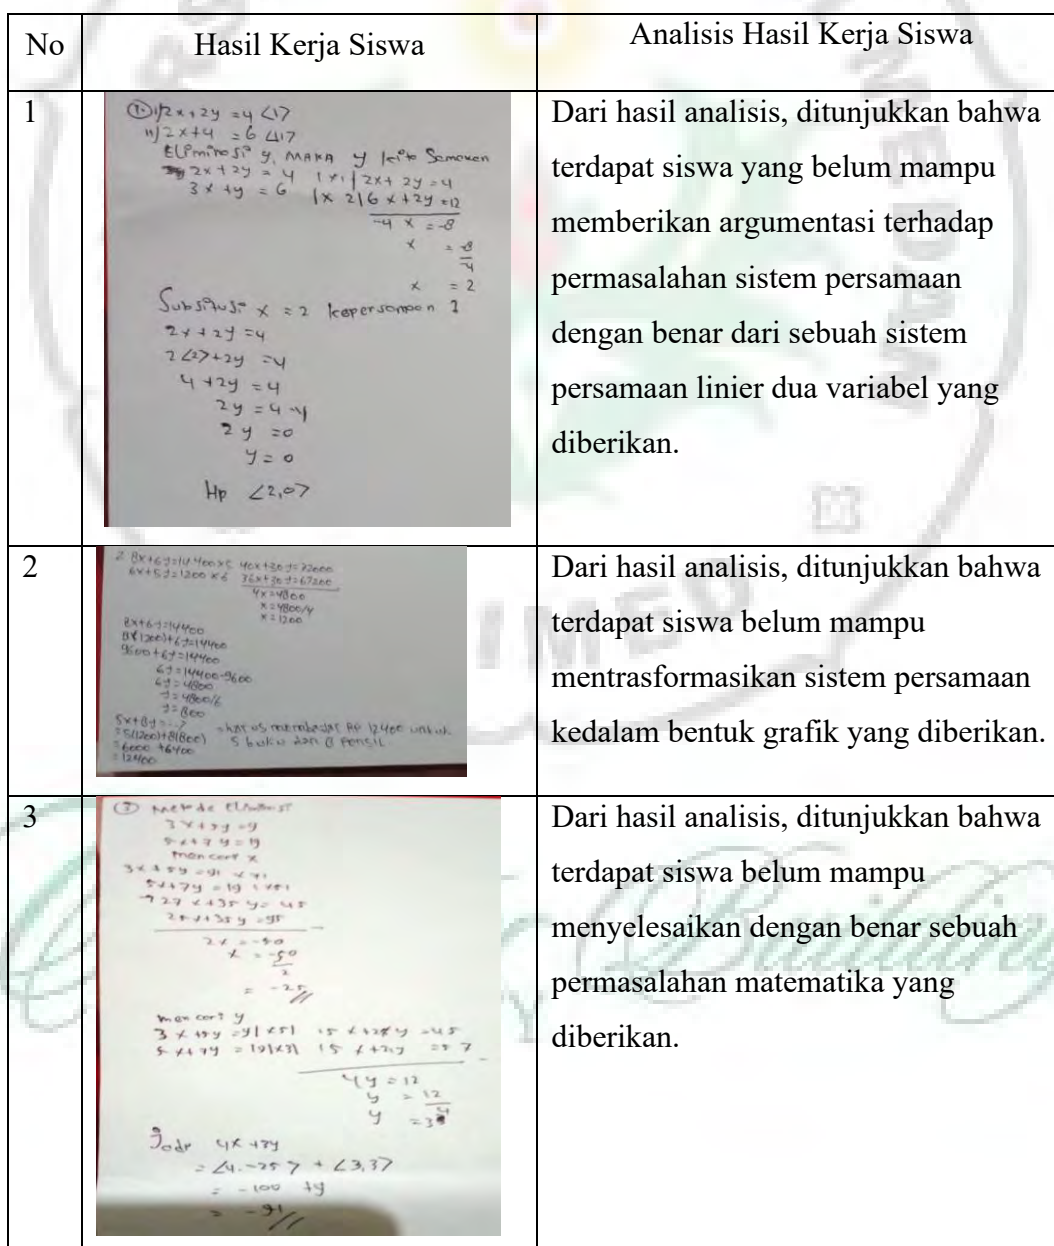 No
Hasil Kerja Siswa
Analisis Hasil Kerja Siswa
1
1. 1) 2x+2y = 4 <17
11) 2x+4 = 6 <17
Eliminasi y, MAKA y kita Samakan
2x+2y = 4 |x1| 2x+ 2y=4
3x +y = 6 |x 2| 6x+2y=12
-4 x = -8
x = -8
-4
x = 2
Substitusi x = 2 kepersamaan 1
2x+2y=4
2<2>+2y =4
4+2y = 4
2y = 4-4
2y =0
y = 0
Hp <2,0>
Dari hasil analisis, ditunjukkan bahwa
terdapat siswa yang belum mampu
memberikan argumentasi terhadap
permasalahan sistem persamaan
dengan benar dari sebuah sistem
persamaan linier dua variabel yang
diberikan.
2
2. 8x+6y=14400x5 40x+30y=72000
6x+5y=1200x6 36x+30y=67200
4x=4800
x=4800/4
x=1200
8x+6y=14400
8(1200)+6y=14400
9600+6y=14400
6y=14400-9600
6y=4800
y=4800/6
y=800
5x+8y=...?
=5(1200)+8(800)
=6000+6400
=12400
harus membayar Rp 12400 untuk
5 buku dan 8 pensil
Dari hasil analisis, ditunjukkan bahwa
terdapat siswa belum mampu
mentrasformasikan sistem persamaan
kedalam bentuk grafik yang diberikan.
3
3 Metode Eliminasi
mencari x
2x = -50
x = -50
2
= -25//
mencari y
4y = 12
y = 12
4
y = 3
= <4.-25> + <3,3>
= -100 +9
= -91//
Dari hasil analisis, ditunjukkan bahwa
terdapat siswa belum mampu
menyelesaikan dengan benar sebuah
permasalahan matematika yang
diberikan.